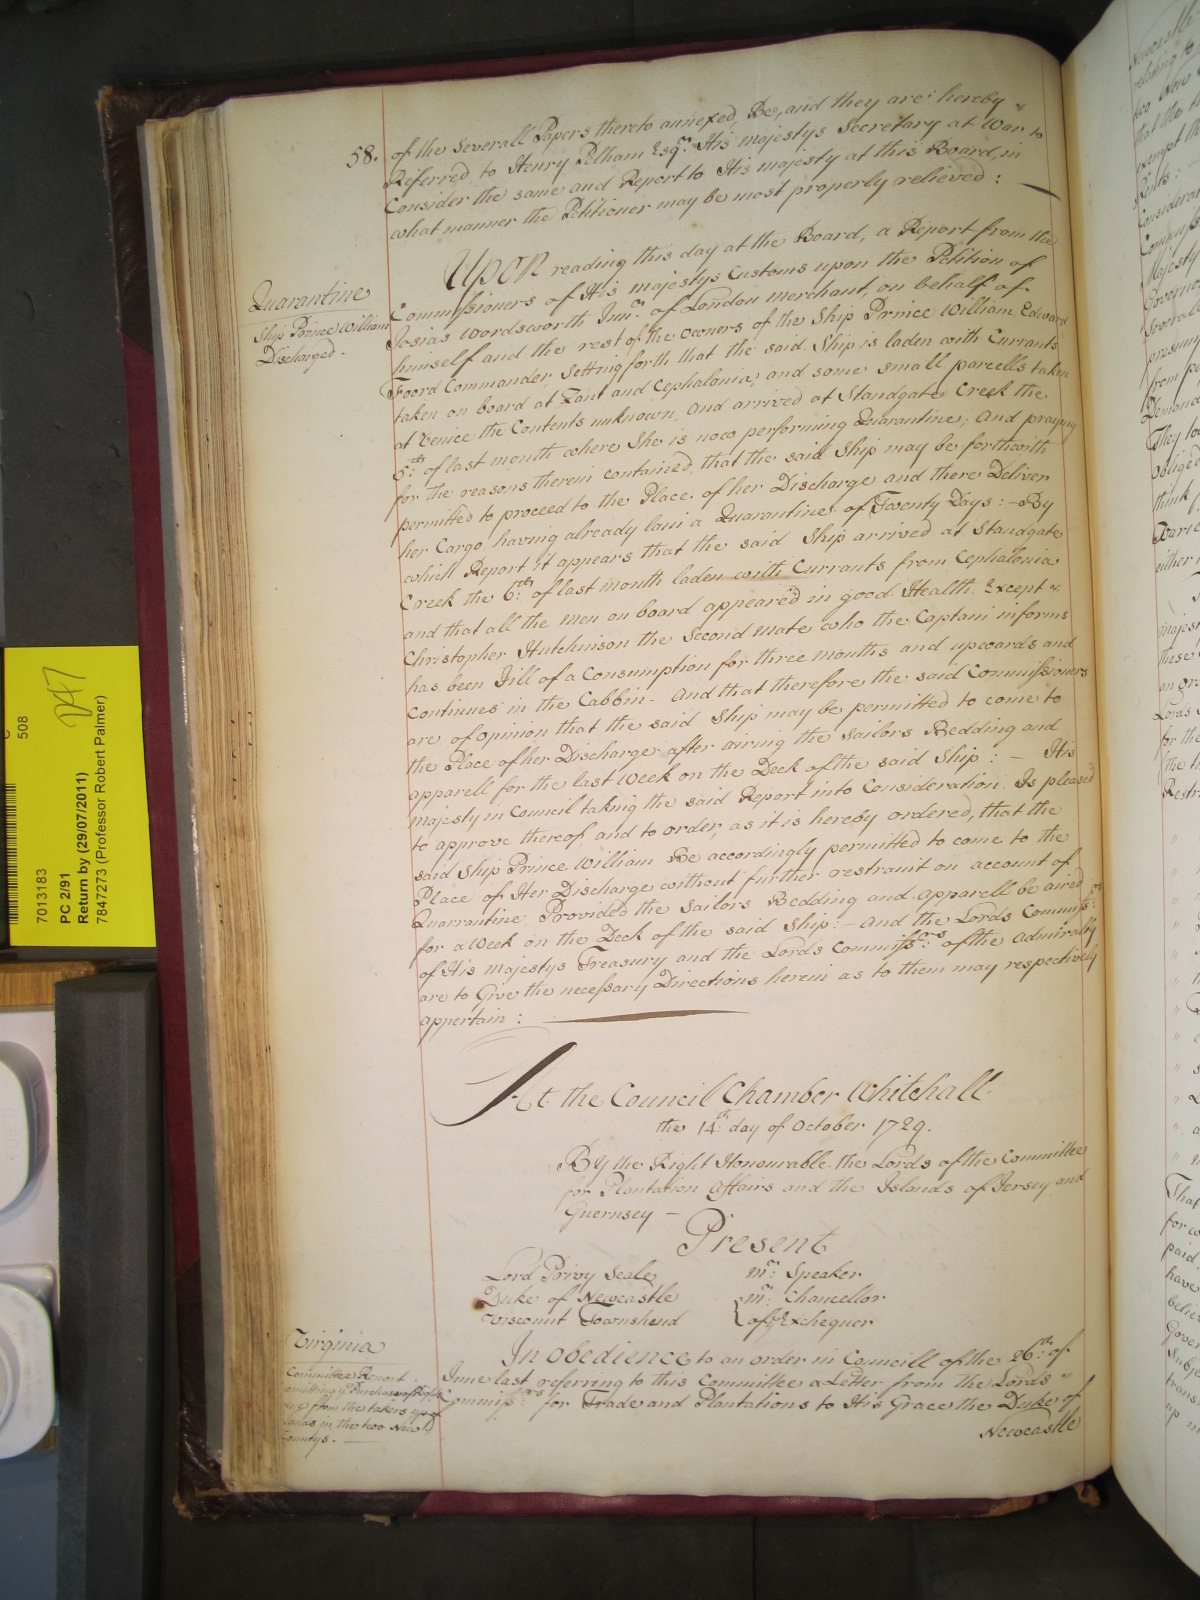 58.
of the severall Papers thereto annexed, Be, and they are hereby
Referred to Henry Pelham Esqr. His Majestys Secretary at War to
Consider the same and Report to His Majesty at this Board, in
what manner the Petitioner may be most properly relieved: —
Quarantine
Ship Prince William
Discharged.
Upon reading this day at the Board, a Report from the
Commissioners of His Majestys Customs upon the Petition of
Josias Wordsworth Junr. of London Merchant, on behalf of
himself and the rest of the Owners of the Ship Prince William, Edward
Foord Commander Setting forth that the said Ship is laden with Currants
taken on board at Zant and Cephalonia, and some small parcells taken
at Venice the Contents unknown, and arrived at Standgate Creek the
5th: of last month where She is now performing Quarantine, And praying
for the reasons therein contained, that the said Ship may be forthwith
permitted to proceed to the Place of her Discharge and there Deliver
her Cargo, having already lain a Quarantine of Twenty Days: — By
which Report it appears that the said Ship arrived at Standgate
Creek the 6th: of last month laden with Currants from Cephalonia
and that all the men on board appeared in good Health Except
Christopher Hutchinson the Second Mate who the Captain informs
has been Jill of a Consumption for three months and upwards and
Continues in the Cabbin. And that therefore the said Commissioners
are of opinion that the said Ship may be permitted to come to
the Place of her Discharge after airing the Sailors Bedding and
apparell for the last Week on the Deck of the said Ship: — His
Majesty in Council taking the said Report into Consideration Is pleased
to approve thereof and to order, as it is hereby ordered, that the
said Ship Prince William Be accordingly permitted to come to the
Place of Her Discharge without further restraint on account of
Quarrantine Provided the Sailors Bedding and Apparell be aired
for a Week on the Deck of the said Ship: — And the Lords Commissrs:
of His Majestys Treasury and the Lords Commissrs: of the Admiralty
are to Give the necessary Directions herein as to them may respectively
appertain:
At the Council Chamber Whitehall
the 14th day of October 1729.
By the Right Honourable the Lords of the Committee
for Plantation Affairs and the Islands of Jersey and
Guernsey —
Present
Lord Privy Seale
Duke of Newcastle
Viscount Townshend
Mr: Speaker
Mr: Chancellor
of ye Exchequer
Virginia
Committee Report
from the takers up of
Lands in the two New
Countys.
In obedience to an order in Councill of the 26th: of
June last referring to this Committee a Letter from the Lords
Commissrs: for Trade and Plantations to His Grace the Duke of
Newcastle
508
247
7013183
PC 2/91
Return by (29/07/2011)
7847273 (Professor Robert Palmer)